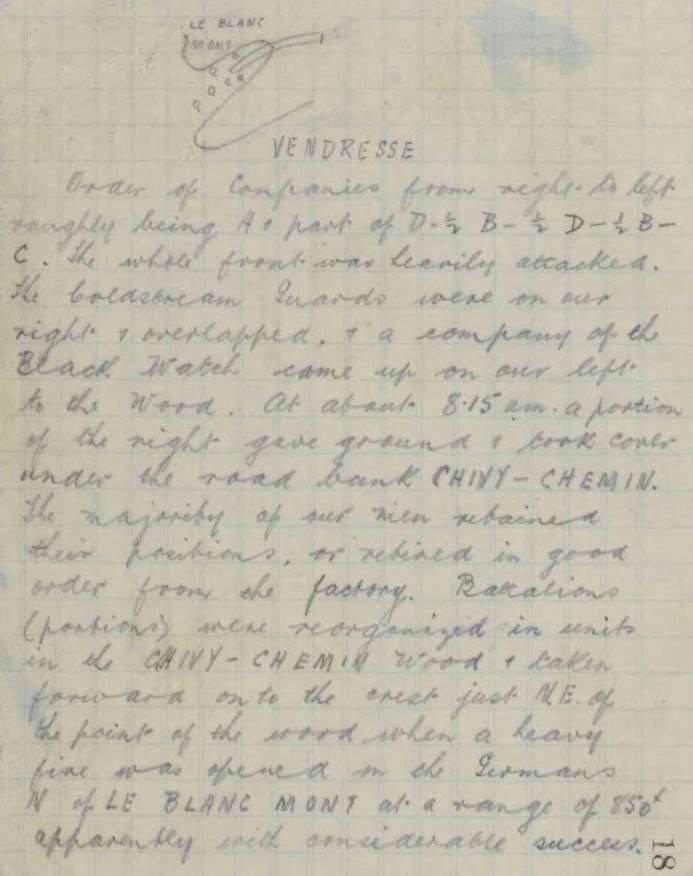 LE BLANC
MONT
VENDRESSE
Order of Companies from right to left
roughly being A & part of D - ½ B - ½ D - ½ B -
C. The whole front was heavily attacked.
The Coldstream Guards were on our
right & overlapped, & a company of the
Black Watch came up on our left
to the Wood. At about 8.15 am. a portion
of the right gave ground & took cover
under the road bank CHIVY - CHEMIN.
The majority of our men retained
their positions, or retired in good
order from the factory. Battalions
(portions) were reorganized in units
in the CHIVY - CHEMIN Wood & taken
forward on to the crest just N.E. of
the point of the wood when a heavy
fire was opened on the Germans
N of LE BLANC MONT at a range of 850ˣ
apparently with considerable success.
18